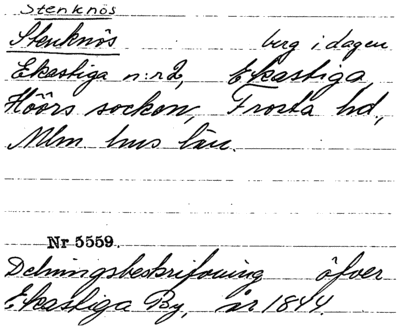 Stenknös
Stenknös berg i dagen
Ekastiga n:r 2, Ekastiga
Höörs socken, Frosta hd,
Mlm. hus län.
Nr 5559.
Delningsbeskrifning öfver
Ekastiga By, år 1844.